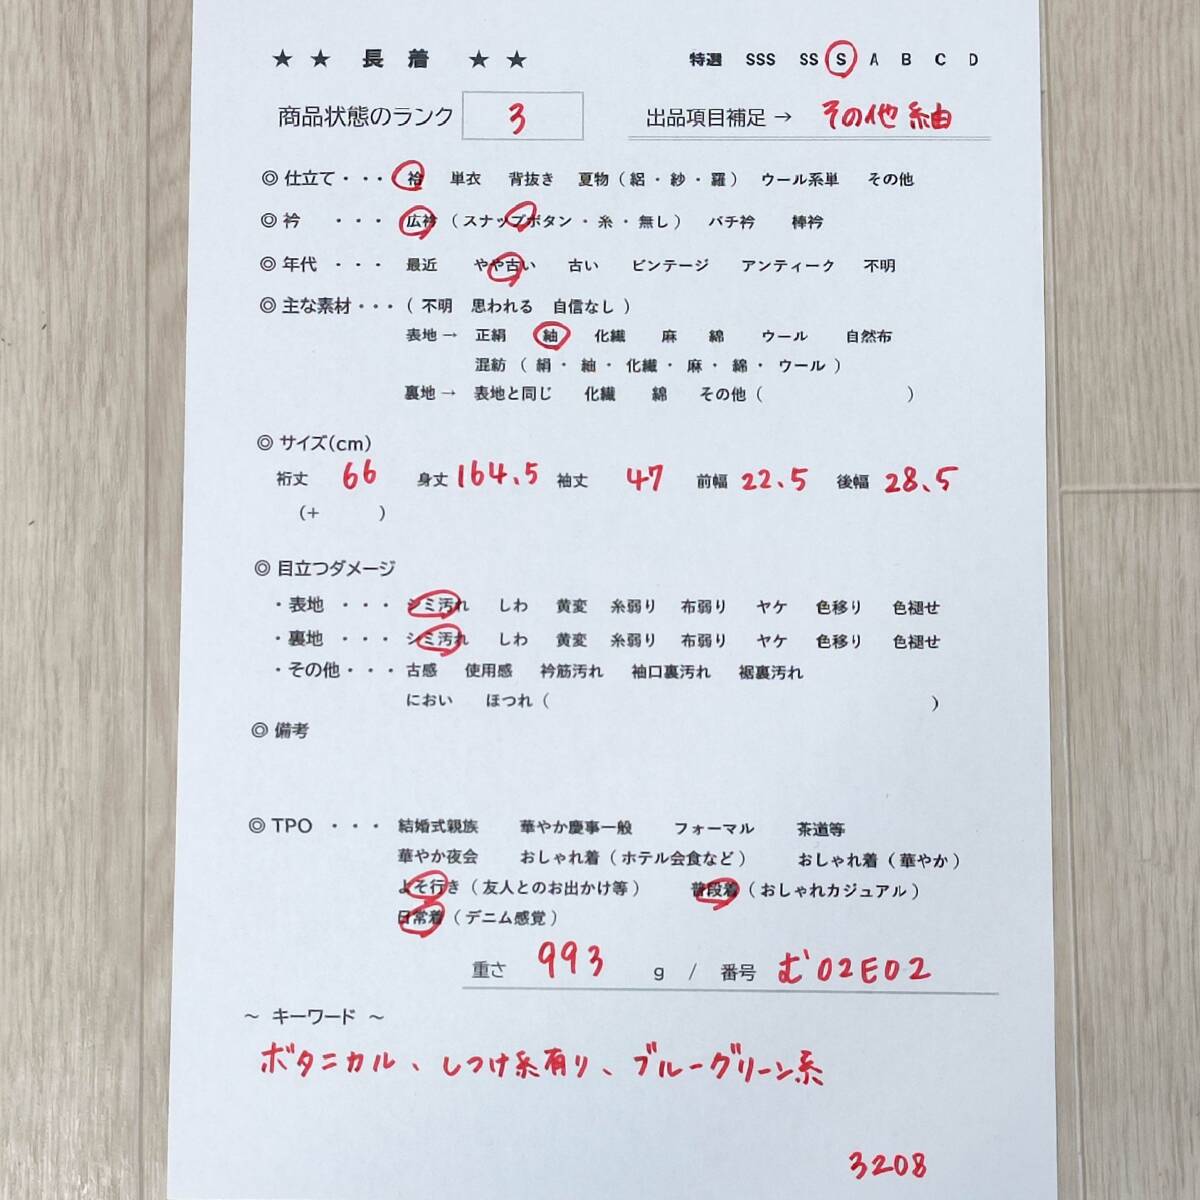 ★ ★ 長 着 ★ ★ 特選 SSS SS S A B C D
商品状態のランク 3 出品項目補足 → その他 紬
◎ 仕立て ・・・ 袷 単衣 背抜き 夏物 ( 絽 ・ 紗 ・ 羅 ) ウール系単 その他
◎ 衿 ・・・ 広衿 ( スナップボタン ・ 糸 ・ 無し ) バチ衿 棒衿
◎ 年代 ・・・ 最近 やや古い 古い ビンテージ アンティーク 不明
◎ 主な素材 ・・・ ( 不明 思われる 自信なし )
表地 → 正絹 紬 化繊 麻 綿 ウール 自然布
混紡 ( 絹 ・ 紬 ・ 化繊 ・ 麻 ・ 綿 ・ ウール )
裏地 → 表地と同じ 化繊 綿 その他 ( )
◎ サイズ(cm)
裄丈 66 身丈 164.5 袖丈 47 前幅 22.5 後幅 28.5
(+ )
◎ 目立つダメージ
・ 表地 ・・・ シミ汚れ しわ 黄変 糸弱り 布弱り ヤケ 色移り 色褪せ
・ 裏地 ・・・ シミ汚れ しわ 黄変 糸弱り 布弱り ヤケ 色移り 色褪せ
・ その他 ・・・ 古感 使用感 衿筋汚れ 袖口裏汚れ 裾裏汚れ
におい ほつれ ( )
◎ 備考
◎ TPO ・・・ 結婚式親族 華やか慶事一般 フォーマル 茶道等
華やか夜会 おしゃれ着 ( ホテル会食など ) おしゃれ着 ( 華やか )
よそ行き ( 友人とのお出かけ等 ) 普段着 ( おしゃれカジュアル )
日常着 ( デニム感覚 )
重さ 993 g / 番号 む02E02
～ キーワード ～
ボタニカル、しつけ糸有り、ブルーグリーン系
3208